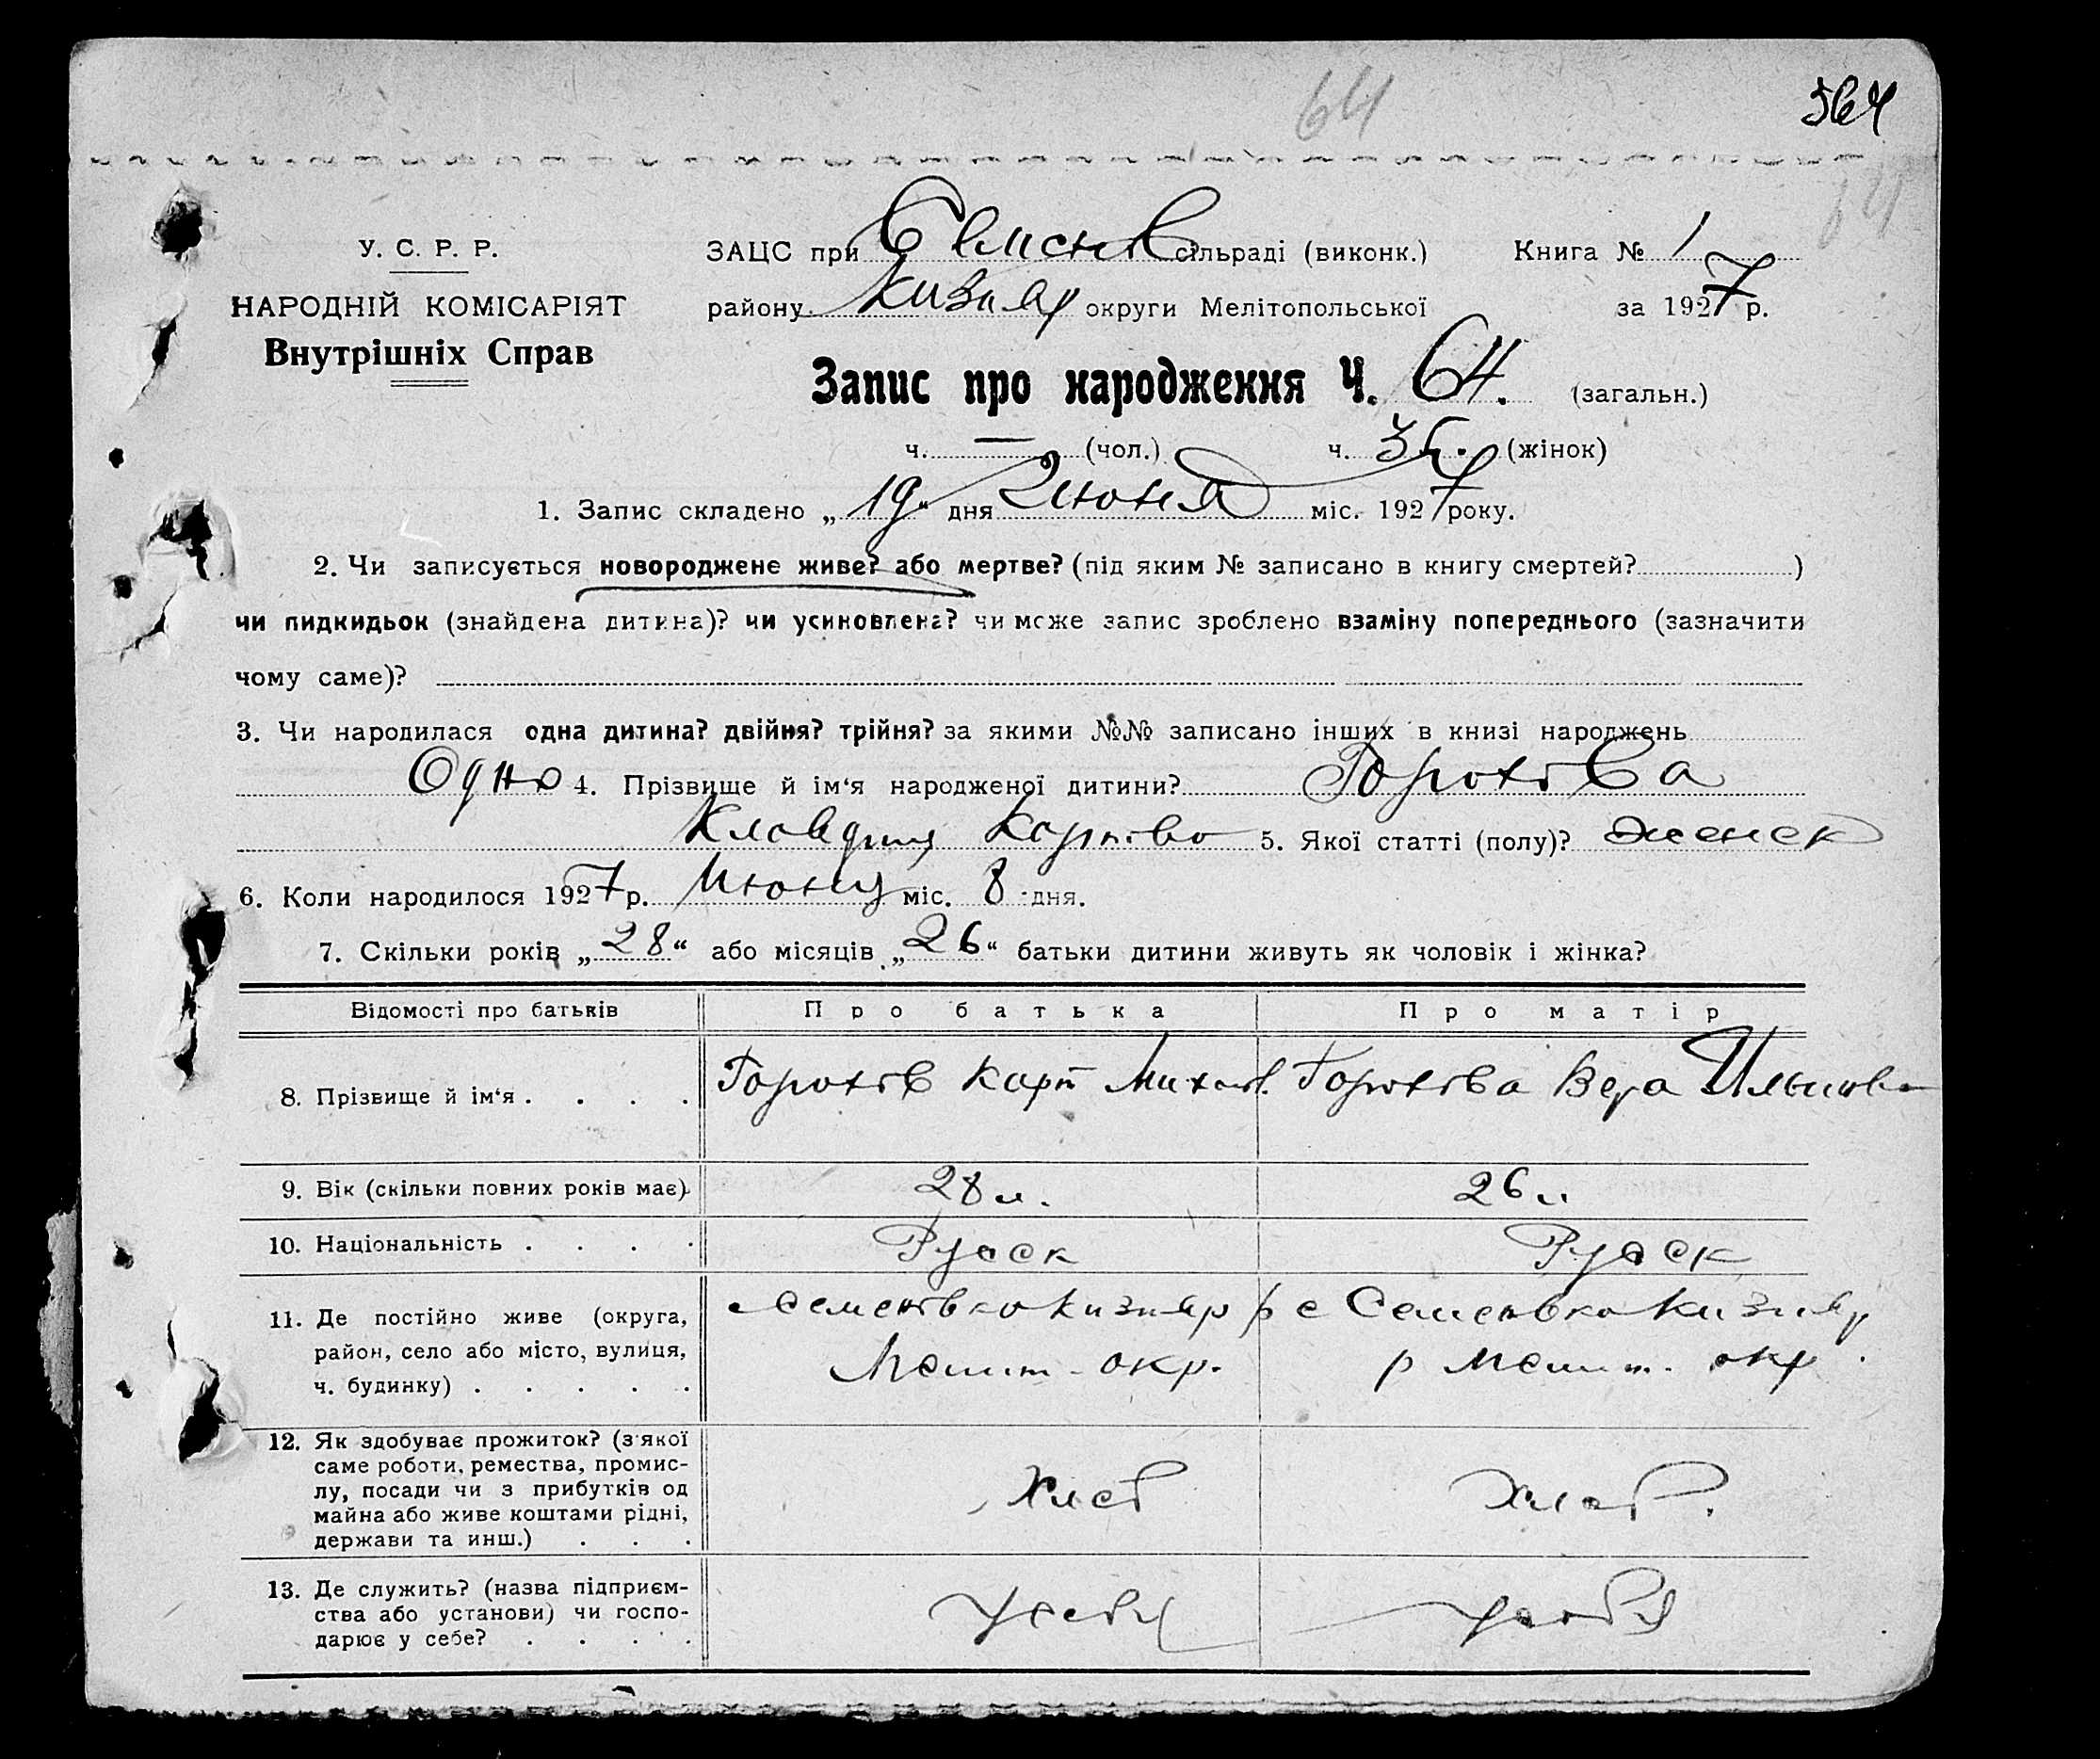 64
564
64
У. С. Р. Р.
НАРОДНІЙ КОМІСАРІЯТ
Внутрішніх Справ
ЗАЦС при Семенів сільраді (виконк.) Книга № 1
району Кизияр округи Мелітопольської за 1927 р.
Запис про народження Ч. 64. (загальн.)
ч. — (чол.) ч. (жінок)
1. Запис складено „19“ дня Июня міс. 1927 року.
2. Чи записується новороджене живе? або мертве? (під яким № записано в книгу смертей? )
чи пидкидьок (знайдена дитина)? чи усиновлена? чи може запис зроблено взаміну попереднього (зазначити
чому саме)?
3. Чи народилася одна дитина? двійня? трійня? за якими №№ записано інших в книзі народжень
Одно 4. Прізвище й ім‘я народженої дитини? Горохова
Клавдия Карповна 5. Якої статті (полу)? женск
6. Коли народилося 1927 р. Июня міс. 8 дня.
7. Скільки років „28“ або місяців „26“ батьки дитини живуть як чоловік і жінка?
Відомості про батьків Про батька Про матір
8. Прізвище й ім‘я . . . . Горохов Карп Михайл. Горохова Вера Ильинов
9. Вік (скільки повних років має). 28 л. 26 л.
10. Національність . . . . Русск Русск
11. Де постійно живе (округа,
район, село або місто, вулиця,
ч. будинку) . . . . .
с Семеновка Кизияр р
Мелит. окр.
с Семеновка Кизияр
р Мелит. окр.
12. Як здобуває прожиток? (з якої
саме роботи, ремества, промис-
лу, посади чи з прибутків од
майна або живе коштами рідні,
держави та инш.) . . .
Хлеб
Хлеб.
13. Де служить? (назва підприєм-
ства або установи) чи госпо-
дарює у себе? . . . .
у себя
у себя